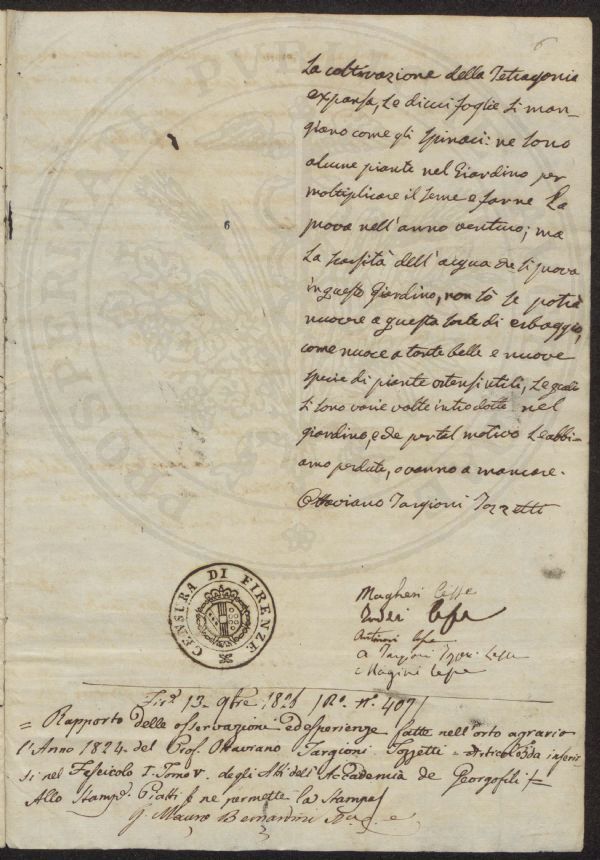 6
La coltivazione della Tetragonia
expansa, Le di cui foglie si man-
giano come gli spinaci: ne sono
alcune piante nel Giardino per
moltiplicare il seme e farne La
prova nell'anno venturo; ma
La scarsità dell'acqua che si prova
in questo giardino, non sò se potrà
nuocere a questa sorte di erbaggio,
come nuoce a tante belle e nuove
specie di piante ortensi utili, Le quali
si sono varie volte introdotte nel
giardino, e che per tal motivo Le abbi-
amo perdute, o vanno a mancare.
Ottaviano Targioni Tozzetti
6
CENSURA DI FIRENZE
Magheri
Antinori
Targioni Tozz.
Magini
13. 9bre 182 N.° 407
= Rapporto delle osservazioni ed esperienze fatte nell'orto agrario
l'Anno 1824. del Prof. Ottaviano Targioni Tozzetti = Articolo da inserir-
si nel Fascicolo I. Tomo V. degli Atti dell'Accademia de Georgofili
Allo Stamp.e Piatti se ne permette la Stampa
Mauro Bernardini